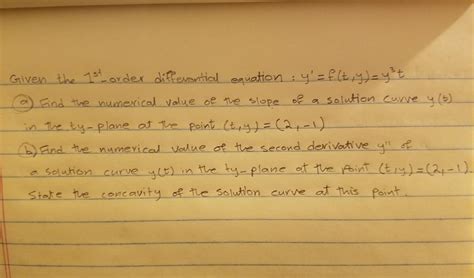 Given the 1st-order differential equation : y' = f(t,y) = y²t
(a) Find the numerical value of the slope of a solution curve y(t)
in the ty-plane at the point (t,y) = (2,-1)
(b) Find the numerical value of the second derivative y'' of
a solution curve y(t) in the ty-plane at the point (t,y) = (2,-1).
State the concavity of the solution curve at this point.